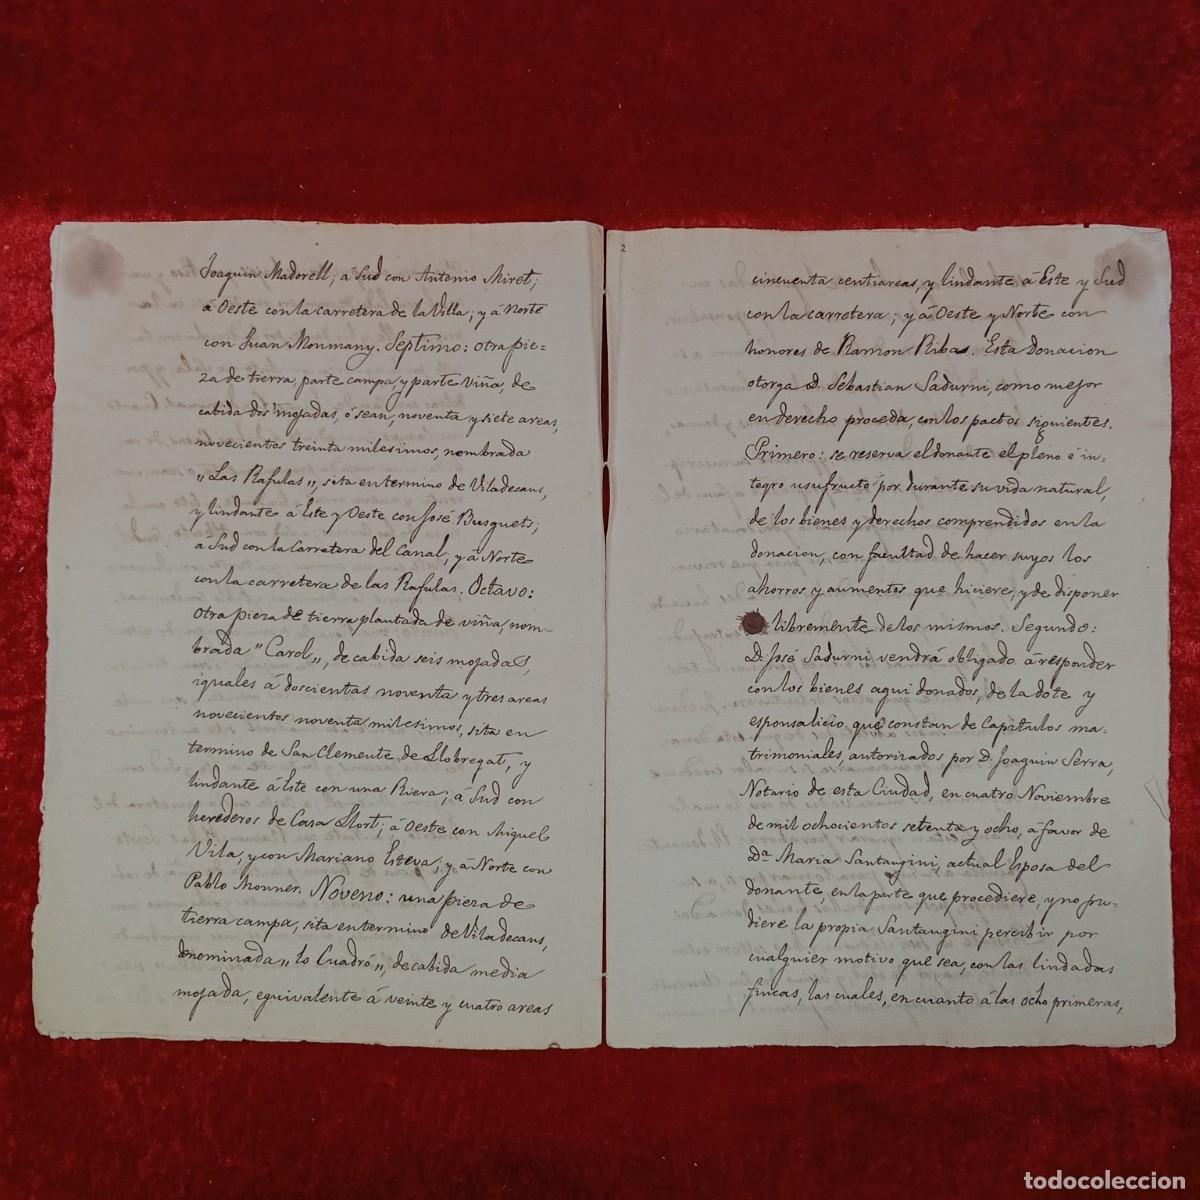 Joaquin Madorell; á Sud con Antonio Miret;
á Oeste con la carretera de la Villa; y á Norte
con Juan Monmany. Septimo: otra pie-
za de tierra, parte campa, y parte viña, de
cabida dos mojadas, ó sean, noventa y siete areas,
novecientos treinta milesimos, nombrada
"Las Rafulas", sita en termino de Viladecans,
y lindante á Este y Oeste con José Busquets;
á Sud con la Carretera del Canal; y á Norte
con la carretera de las Rafulas. Octavo:
otra pieza de tierra plantada de viña, nom-
brada "Carol", de cabida seis mojadas,
iguales á doscientas noventa y tres areas
novecientos noventa milesimos, sita en
termino de San Clemente de Llobregat, y
lindante á Este con una Riera; á Sud con
herederos de Casa Llort; á Oeste con Miguel
Vila, y con Mariano Esteva; y á Norte con
Pablo Monner. Noveno: una pieza de
tierra campa, sita en termino de Viladecans,
denominada "lo Cuadró", de cabida media
mojada, equivalente á veinte y cuatro areas
2
cincuenta centiareas, y lindante á Este y Sud
con la carretera; y á Oeste y Norte con
honores de Ramon Ribas. Esta donacion
otorga D. Sebastian Sadurni, como mejor
en derecho proceda, con los pactos siguientes.
Primero: se reserva el donante el pleno é in-
tegro usufructo por durante su vida natural,
de los bienes y derechos comprendidos en la
donacion, con facultad de hacer suyos los
ahorros y aumentos que hiciere, y de disponer
libremente de los mismos. Segundo:
D. José Sadurni vendrá obligado á responder
con los bienes aqui donados, de la dote y
esponsalicio que constan de Capitulos ma-
trimoniales, autorizados por D. Joaquin Serra,
Notario de esta Ciudad, en cuatro Noviembre
de mil ochocientos setenta y ocho, á favor de
Da. Maria Santaugini, actual Esposa del
donante, en la parte que procediere, y no pu-
diere la propia Santaugini percibir por
cualquier motivo que sea, con las lindadas
fincas, las cuales, en cuanto á las ocho primeras,
todocoleccion